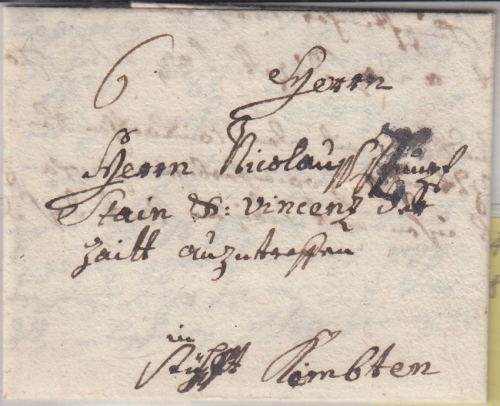 6 Herrn
Herrn Nicolauß
Stain S: Vincenz der
Zeitt anzutreffen
in
Stüfft Kimbten